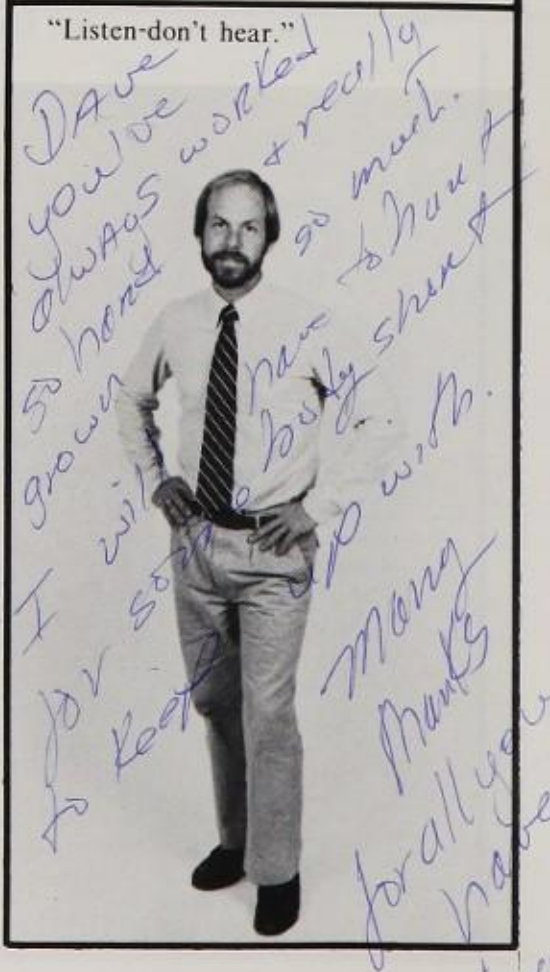 “Listen-don’t hear.”
DAve
you've
always worked
so hard + really
grown so much.
I will have to hunt
for some body
to keep up with.
Many
thanks
for all you
have